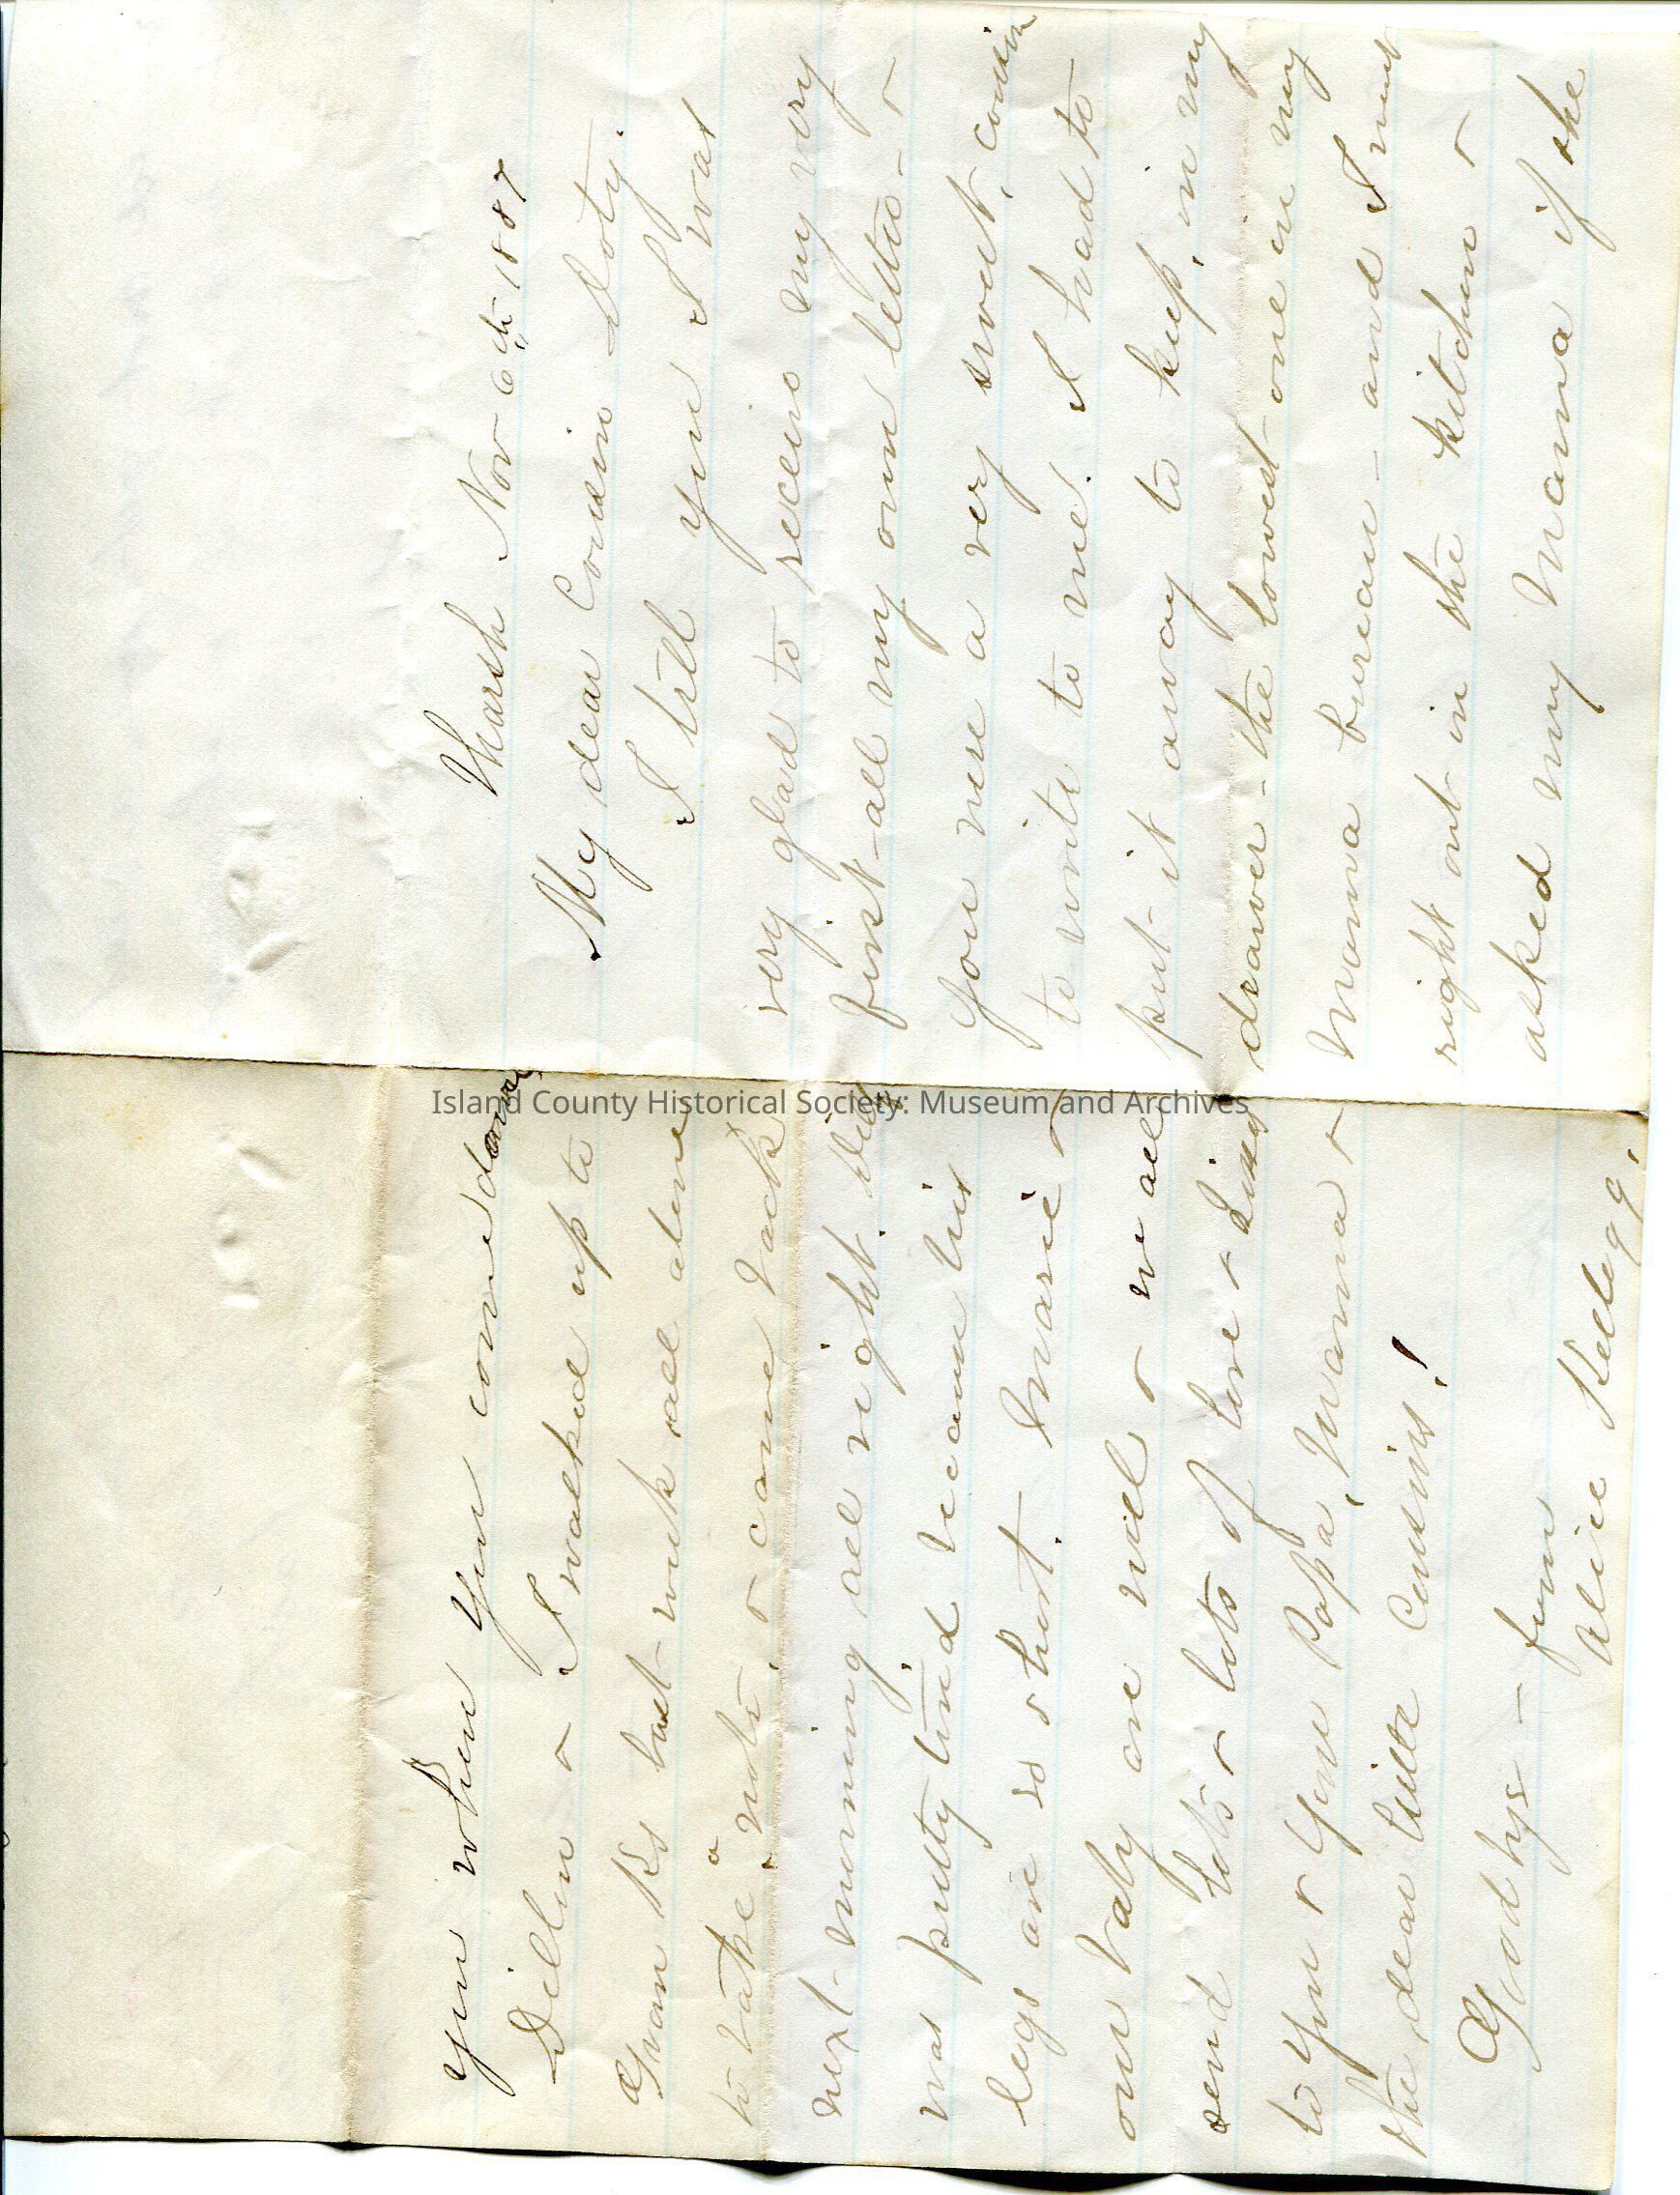 Marsh Nov 6th 1887
My dear Cousin Doty.
I tell you I was
very glad to receive my very
first all my own letter - &
your me a very sweet, cousin
to write to me! I had to
put it away to keep, in my
drawer - the lowest one in my
Mama bureau - and I went
right out in the kitchen &
asked my Mama if she
you when you come down
Dillon & I walked up to
Gran Ks last week all alone
to take a note, & came back
next morning all right. Dig
was putty tired, because his
legs are so short. Marie &
our baby are well & we all
send lots & lots of love & kisses
to you & your Papa, Mama &
the dear little Cousins!
Good bye - from
Alice Kellogg.
Island County Historical Society: Museum and Archives